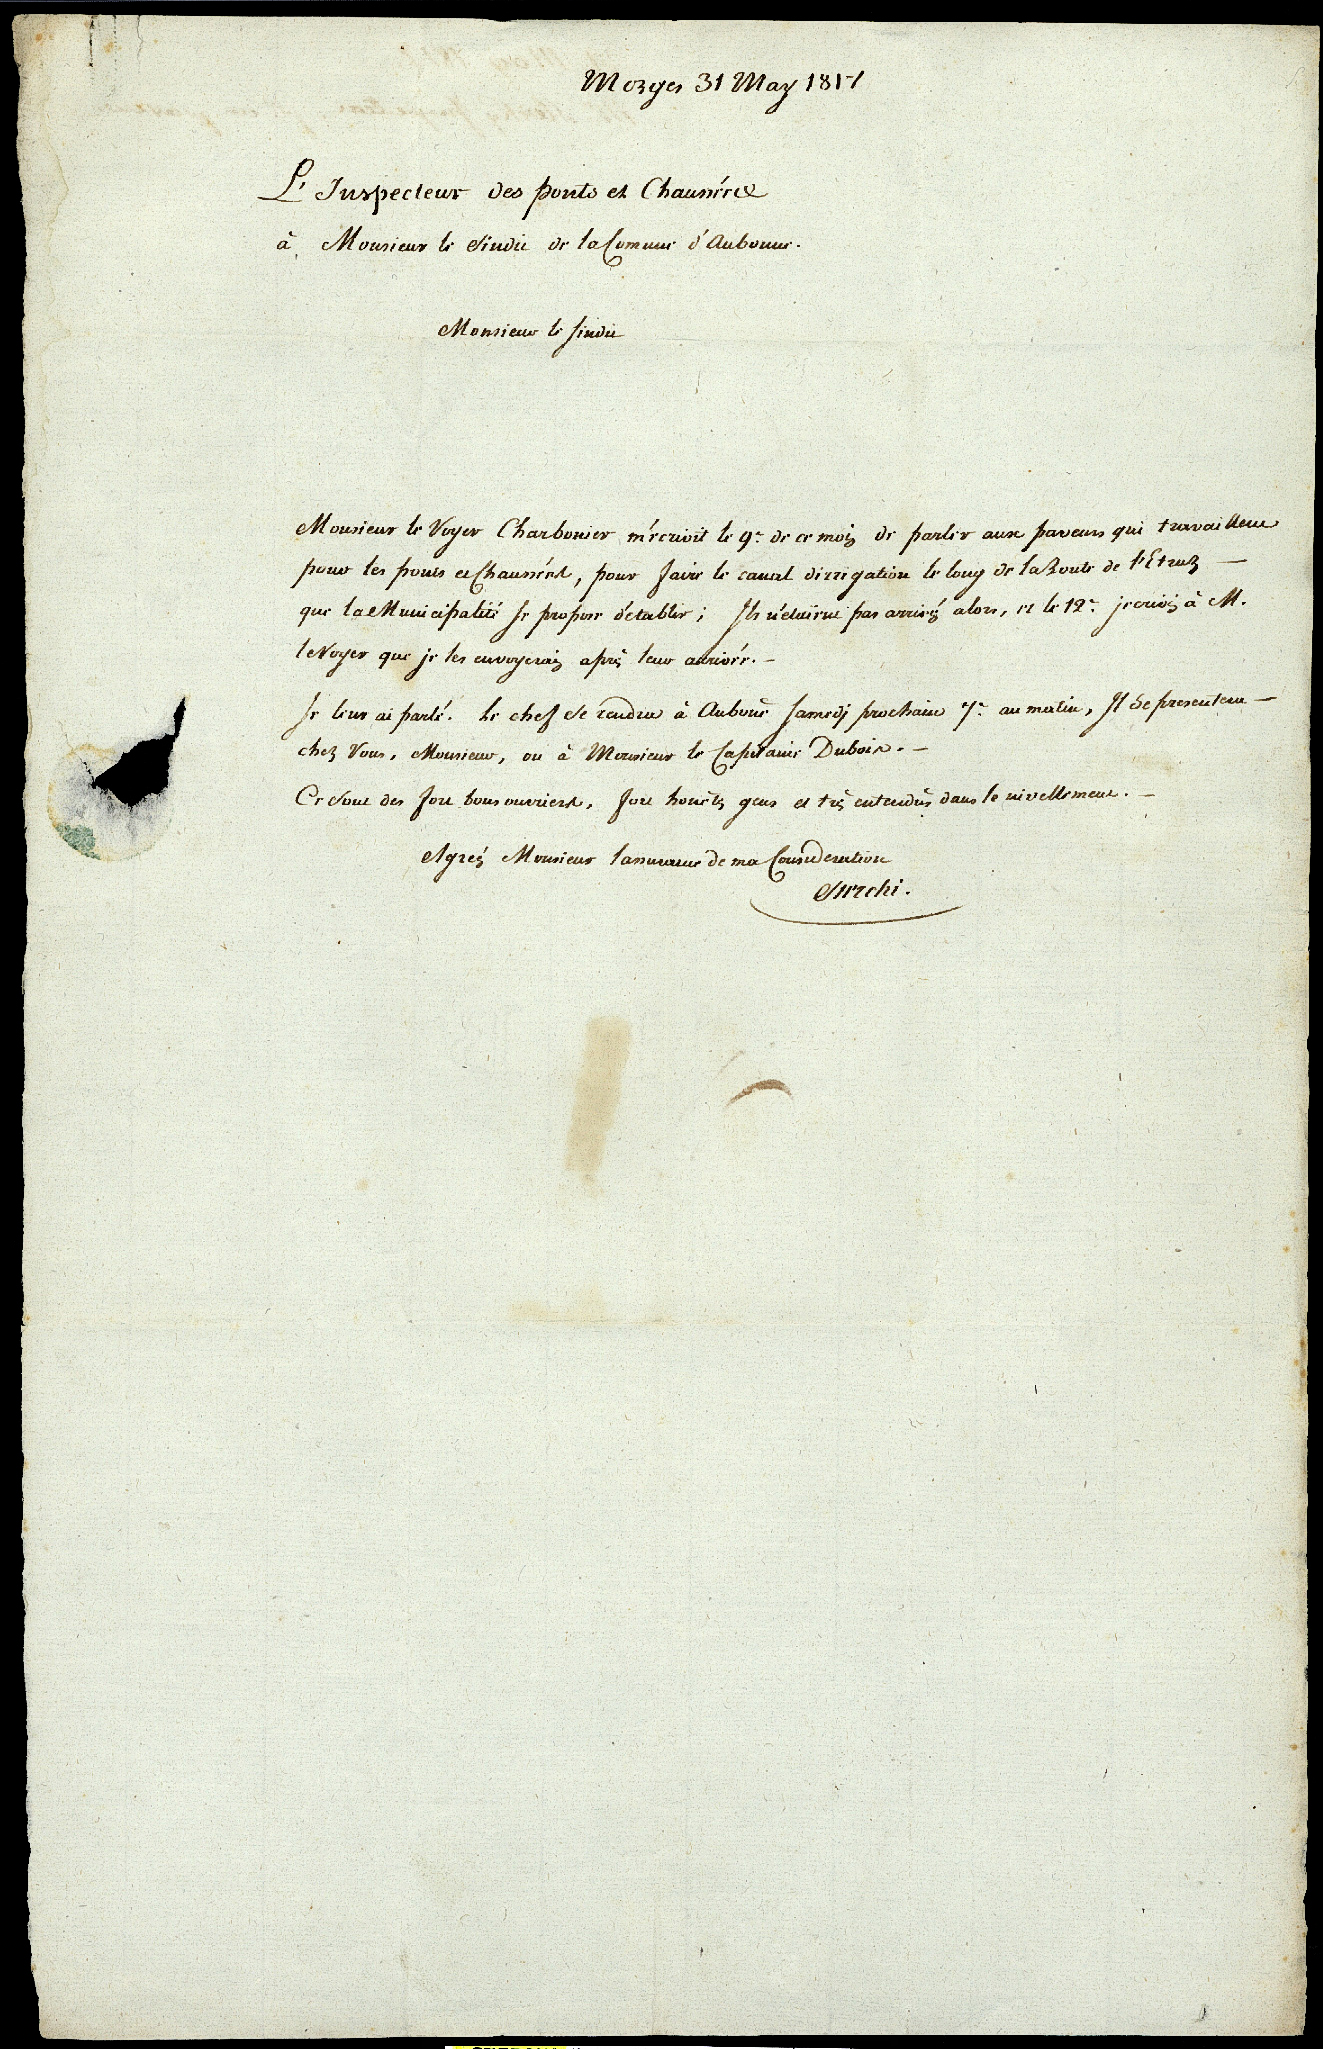 Morges 31 May 1817
L'Inspecteur des ponts et Chaussées
à Monsieur le Sindic de la Comune d'Aubonne.
Monsieur le sindic
Monsieur le Voyer Charbonier m'écrivit le 9e de ce mois de parler aux paveurs qui travaillent
pour les ponts et Chaussées, pour faire le canal dirrigation le long de la Route de
que la Municipalité se propose d'établir; Ils n'étaient pas arrivés alors, et le 12e jecrivis à M.
le Voyer que je les envoyerais après leur arrivée. —
Je leur ai parlé. Le chef se rendra à Aubone samedj prochain 7e au matin, Il se presentera —
chez Vous, Monsieur, ou à Monsieur le Capitaine Dubois. —
Ce sont des fort bons ouvriers, fort honêts gens et très entendus dans le nivellement. —
Agreés Monsieur lassurance de ma Consideration